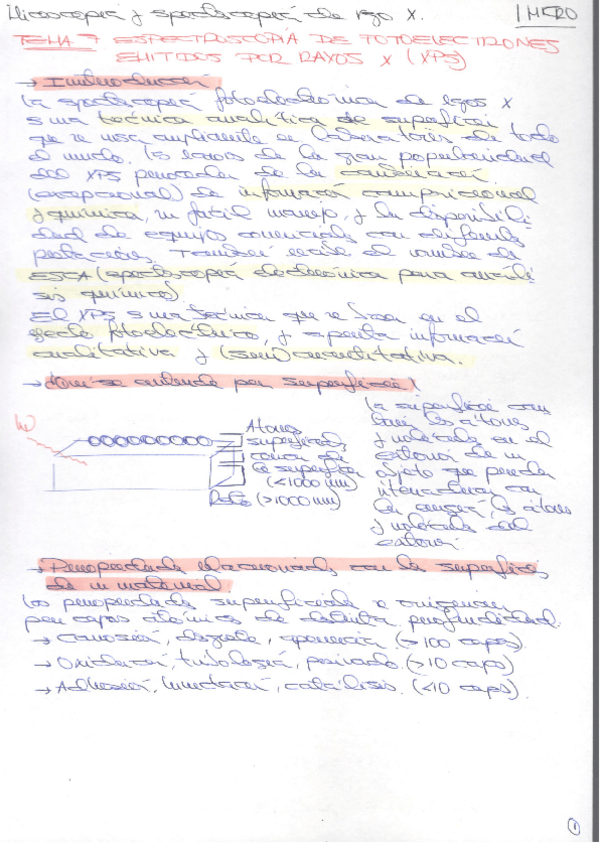 Microscopía y espectroscopía de rayos X.
1 MICRO
TEMA 7 ESPECTROSCOPÍA DE FOTOELECTRONES
EMITIDOS POR RAYOS X (XPS)
→ Introducción
La espectroscopía fotoelectrónica de rayos X
es una técnica analítica de superficies
que se usa ampliamente en laboratorios de todo
el mundo. La razón de la gran popularidad
del XPS proviene de la combinación
(excepcional) de información composicional
y química, su fácil manejo, y la disponibili-
dad de equipos comerciales con diferentes
prestaciones. También recibe el nombre de
ESCA (espectroscopía electrónica para análi-
sis químico).
El XPS es una técnica que se basa en el
efecto fotoeléctrico, y aporta información
cualitativa y (semi)cuantitativa.
→ ¿Qué se entiende por superficie?
Átomos
superficiales
cerca de
la superficie
(<1000 nm)
Resto (>1000 nm)
La superficie
los átomos
y moléculas en el
exterior de un
objeto que pueden
interaccionar con
los átomos
y moléculas del
exterior.
→ Propiedades relacionadas con la superficie
de un material.
Las propiedades superficiales se originan
por capas atómicas de distinta profundidad.
→ Corrosión, desgaste, apariencia (>100 capas)
→ Oxidación, tribología, pasivado (>10 capas)
→ Adhesión, humectación, catálisis (<10 capas).
1